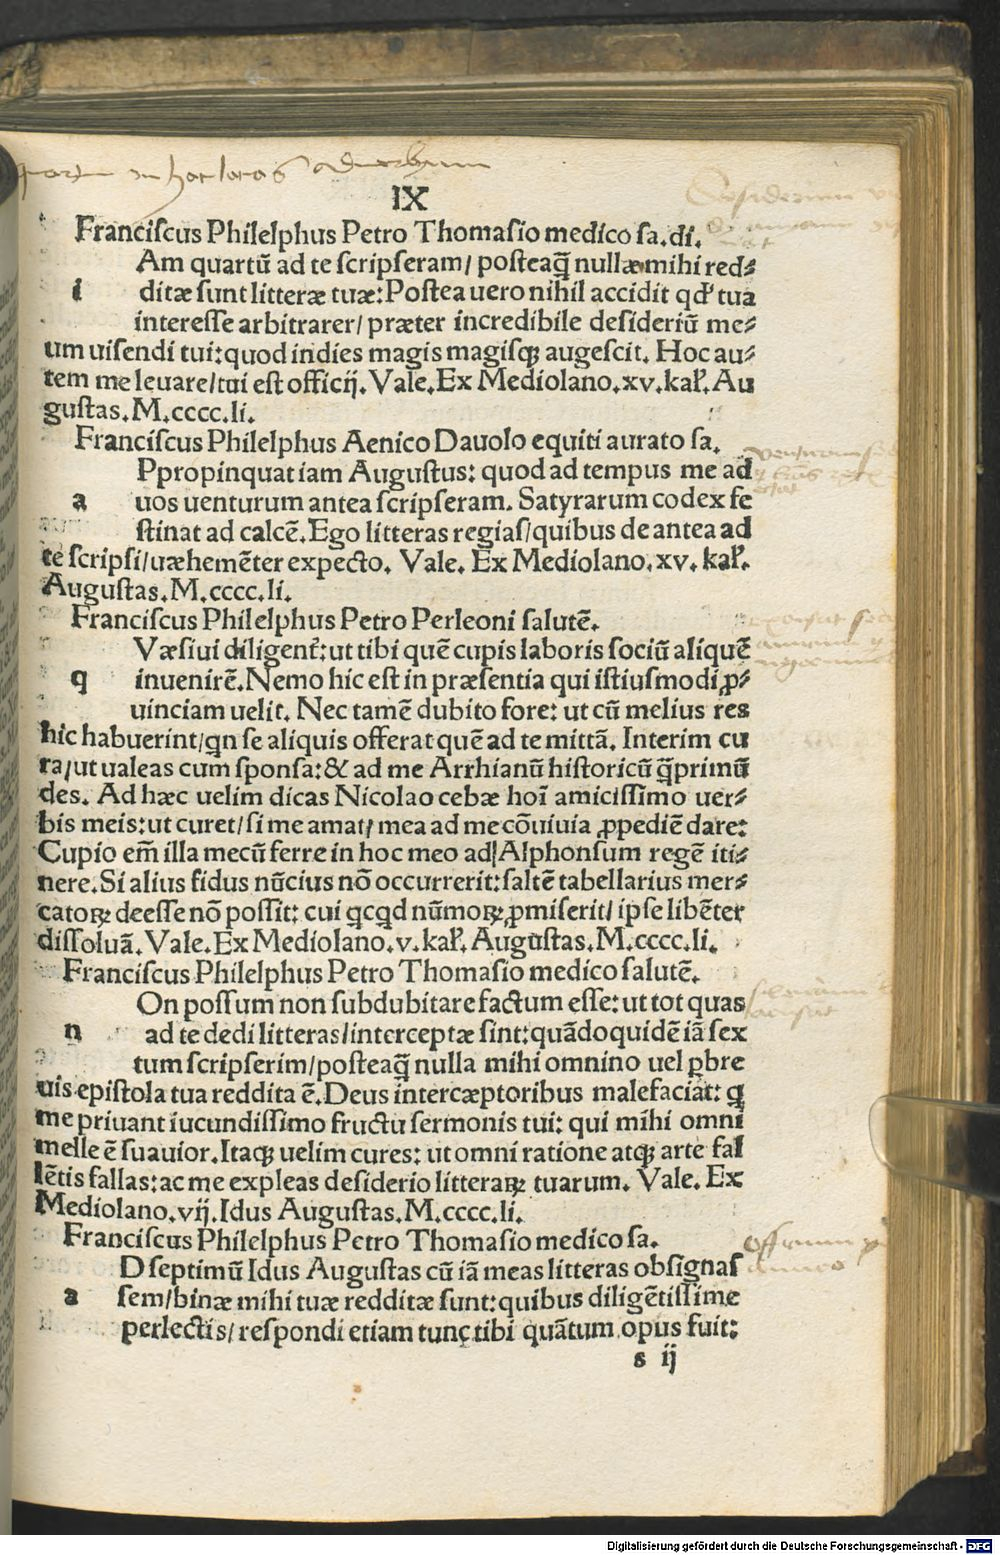 IX
Franciſcus Philelphus Petro Thomaſio medico ſa.di.
Am quartū ad te ſcripſeram/ poſteaq̄ nullæ mihi red⸗
i ditæ ſunt litteræ tuæ: Poſtea uero nihil accidit qđ tua
intereſſe arbitrarer/ præter incredibile deſideriū me⸗
um uiſendi tui: quod indies magis magiſqꝫ augeſcit. Hoc au⸗
tem me leuare/ tui eſt officij. Vale. Ex Mediolano. xv. kal̓. Au
guſtas. M.cccc.li.
Franciſcus Philelphus Aenico Dauolo equiti aurato ſa.
Ppropinquat iam Auguſtus: quod ad tempus me ad
a uos uenturum antea ſcripſeram. Satyrarum codex fe
ſtinat ad calcē. Ego litteras regias/ quibus de antea ad
te ſcripſi/ uæhemēter expecto. Vale. Ex Mediolano. xv. kal̓.
Auguſtas. M.cccc.li.
Franciſcus Philelphus Petro Perleoni ſalutē.
Væſiui diligent̓: ut tibi quē cupis laboris ſociū aliquē
q inuenirē. Nemo hic eſt in præſentia qui iſtiuſmodi ꝓ⸗
uinciam uelit. Nec tamē dubito fore: ut cū melius res
hic habuerint/ qn ſe aliquis offerat quē ad te mittā. Interim cu
ra/ ut ualeas cum ſponſa: & ad me Arrhianū hiſtoricū q̄primū
des. Ad hæc uelim dicas Nicolao cebæ hoī amiciſſimo uer⸗
bis meis: ut curet/ ſi me amat/ mea ad me cōuiuia ꝓpediē dare:
Cupio em̄ illa mecū ferre in hoc meo ad Alphonſum regē iti⸗
nere. Si alius fidus nūcius nō occurrerit: ſaltē tabellarius mer⸗
catoꝝ deeſſe nō poſſit: cui qcqd nūmoꝝ ꝓmiſerit/ ipſe libēter
diſſoluā. Vale. Ex Mediolano. v. kal̓. Auguſtas. M.cccc.li.
Franciſcus Philelphus Petro Thomaſio medico ſalutē.
On poſſum non ſubdubitare factum eſſe: ut tot quas
n ad te dedi litteras/ interceptæ ſint: quādoquidē iā ſex
tum ſcripſerim/ poſteaq̄ nulla mihi omnino uel ꝑbre
uis epiſtola tua reddita ē. Deus intercæptoribus malefaciat: q
me priuant iucundiſſimo fructu ſermonis tui: qui mihi omni
melle ē ſuauior. Itaqꝫ uelim cures: ut omni ratione atqꝫ arte fal
lētis fallas: ac me expleas deſiderio litteraꝝ tuarum. Vale. Ex
Mediolano. vij. Idus Auguſtas. M.cccc.li.
Franciſcus Philelphus Petro Thomaſio medico ſa.
D ſeptimū Idus Auguſtas cū iā meas litteras obſignaſ
a ſem/ binæ mihi tuæ redditæ ſunt: quibus diligētiſſime
perlectis/ reſpondi etiam tunc tibi quātum opus fuit:
s ij
Digitalisierung gefördert durch die Deutsche Forschungsgemeinschaft - DFG